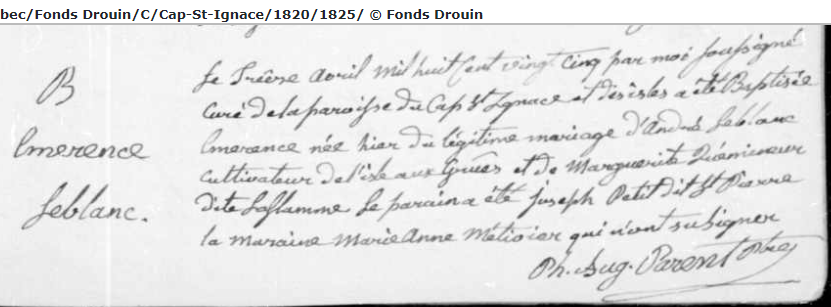 bec/Fonds Drouin/C/Cap-St-Ignace/1820/1825/ © Fonds Drouin
B
Emerence
Leblanc.
Le Treize Avril mil huit Cent vingt Cinq par moi soussigné
Curé de la paroisse du Cap St Ignace et des isles a été Baptisée
Emerence née hier du légitime mariage d'André Leblanc
cultivateur de l'isle aux Grues et de Marguerite Quémineur
dite Laflamme Le parain a été joseph Petit dit St Pierre
la maraine Marie Anne Métivier qui n'ont su signer
Ph. Aug. Parent Ptre